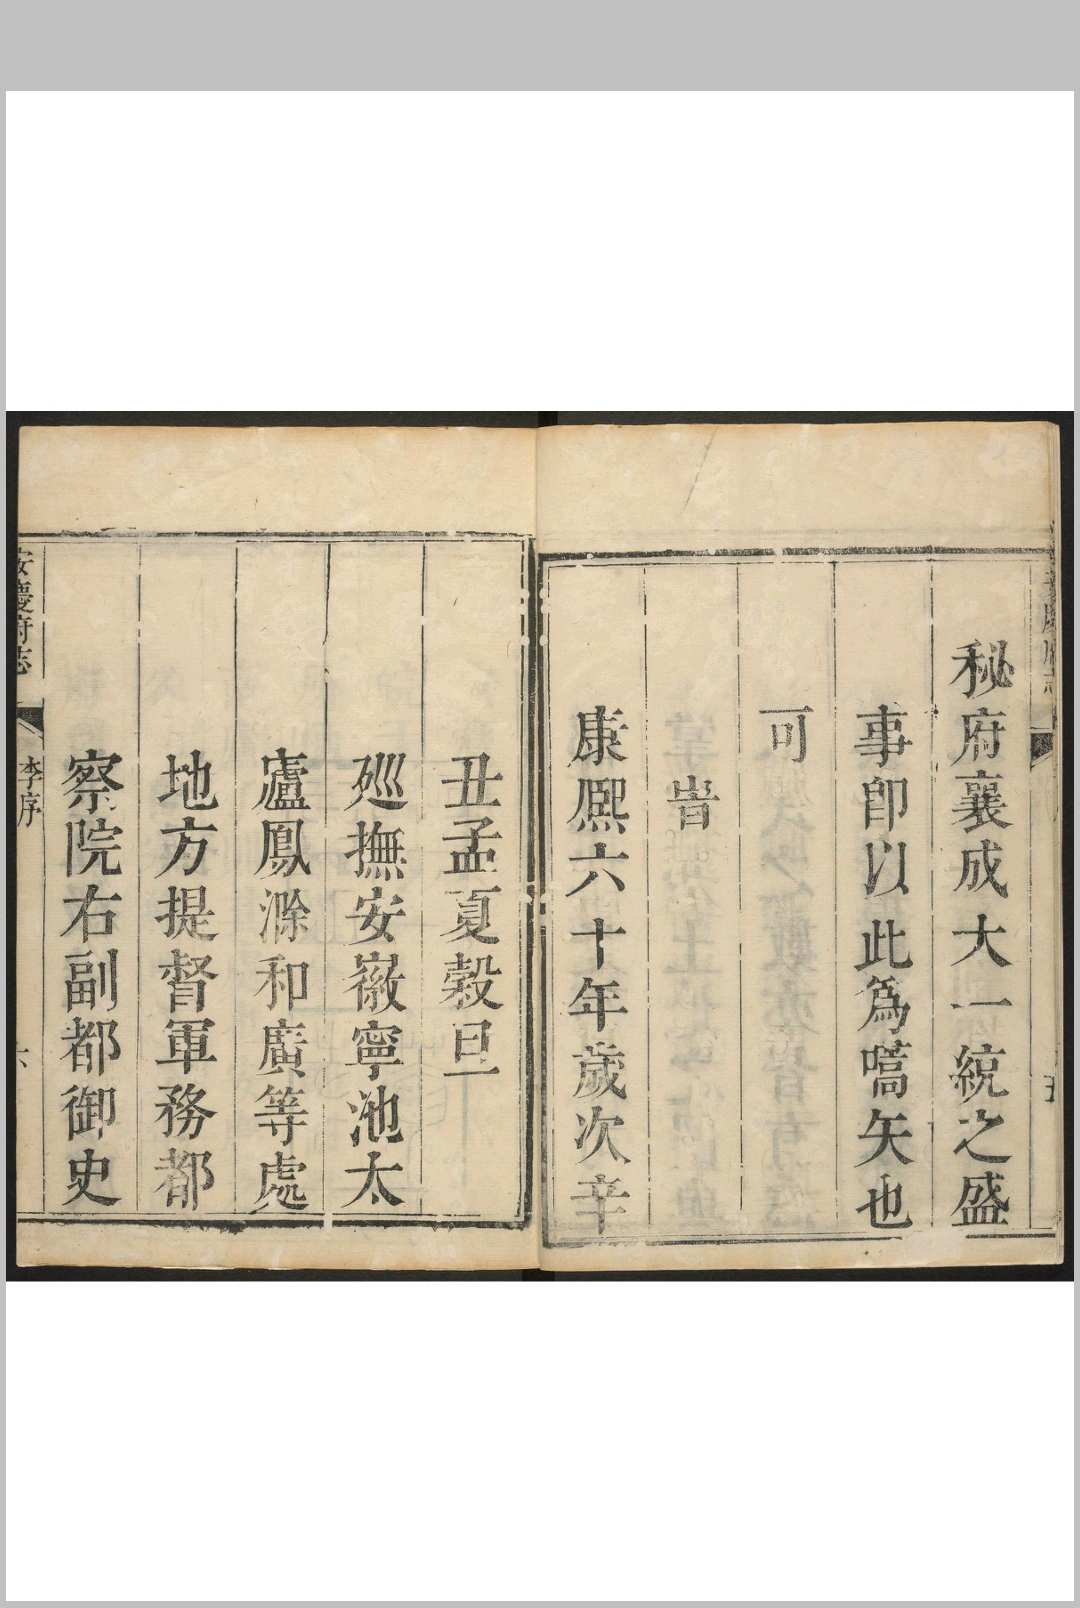 秘府襄成大一統之盛
事卽以此爲嚆矢也
可
旹
康熈六十年歲次辛
丑孟夏穀旦
廵撫安徽寧池太
廬鳳滁和廣等處
地方提督軍務都
察院右副都御史
安慶府志
李序
六